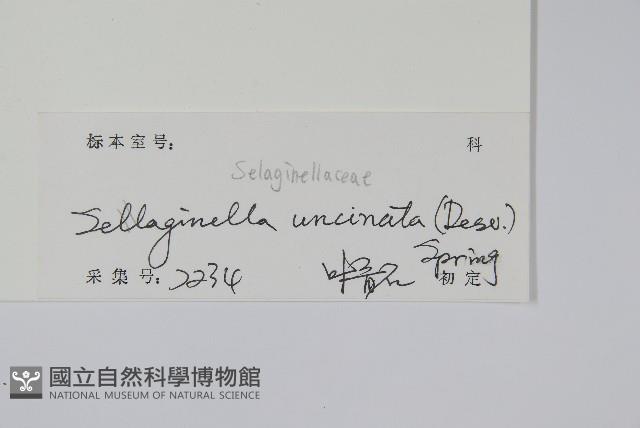 标本室号: 科
Selaginellaceae
Selaginella uncinata (Desv.)
Spring
采集号: 2234 初定
國立自然科學博物館
NATIONAL MUSEUM OF NATURAL SCIENCE